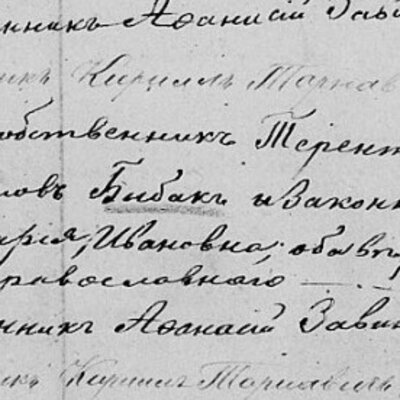 нникъ Аѳанасій Зави
никъ Кириллъ Тарнав
обственникъ Терент
овъ Бибакъ и закон
арія Ивановна; оба въ
равославнаго
нникъ Аѳанасій Завин
икъ Кириллъ Тарнавскій